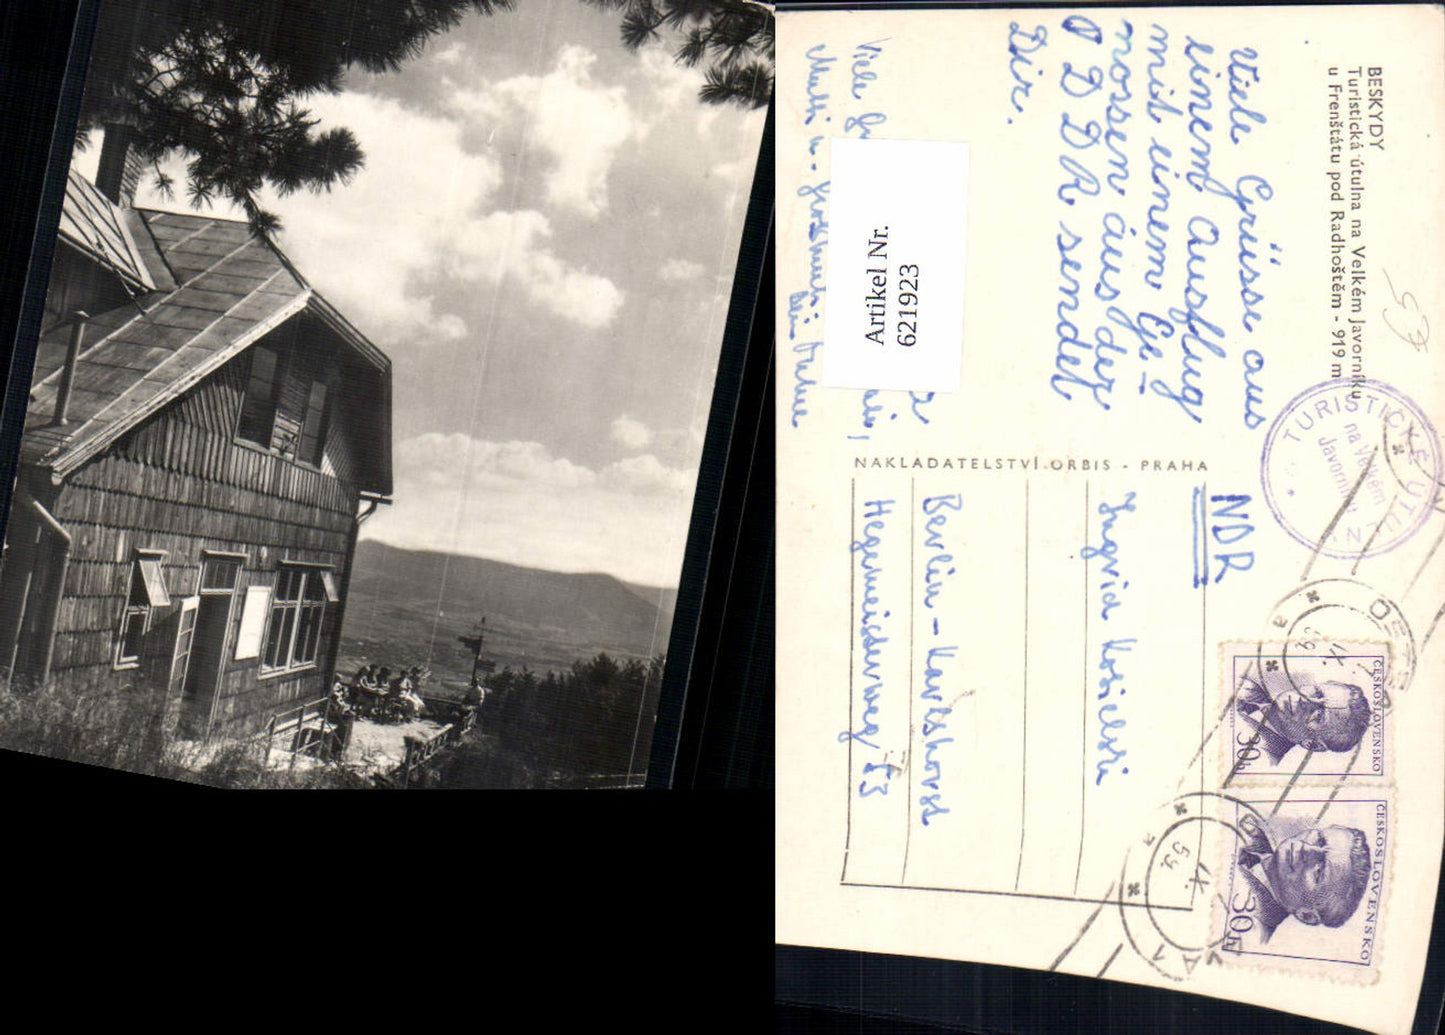 BESKYDY
Turistická útulna na Velkém Javorníku
u Frenštátu pod Radhoštěm - 919 m
Viele Grüsse aus
einem Ausflug
mit einem Ge-
nossen aus der
DDR sendet
Dir.
Viele
Mutti u.
Artikel Nr.
621923
NAKLADATELSTVÍ ORBIS - PRAHA
TURISTICKÉ ÚTUL
na Velkém
Javorníku
NDR
Ingrid
Berlin - Karlshorst
Hegemeisterweg
ČESKOSLOVENSKO
30h
ČESKOSLOVENSKO
30h
IX. 59
IX. 59